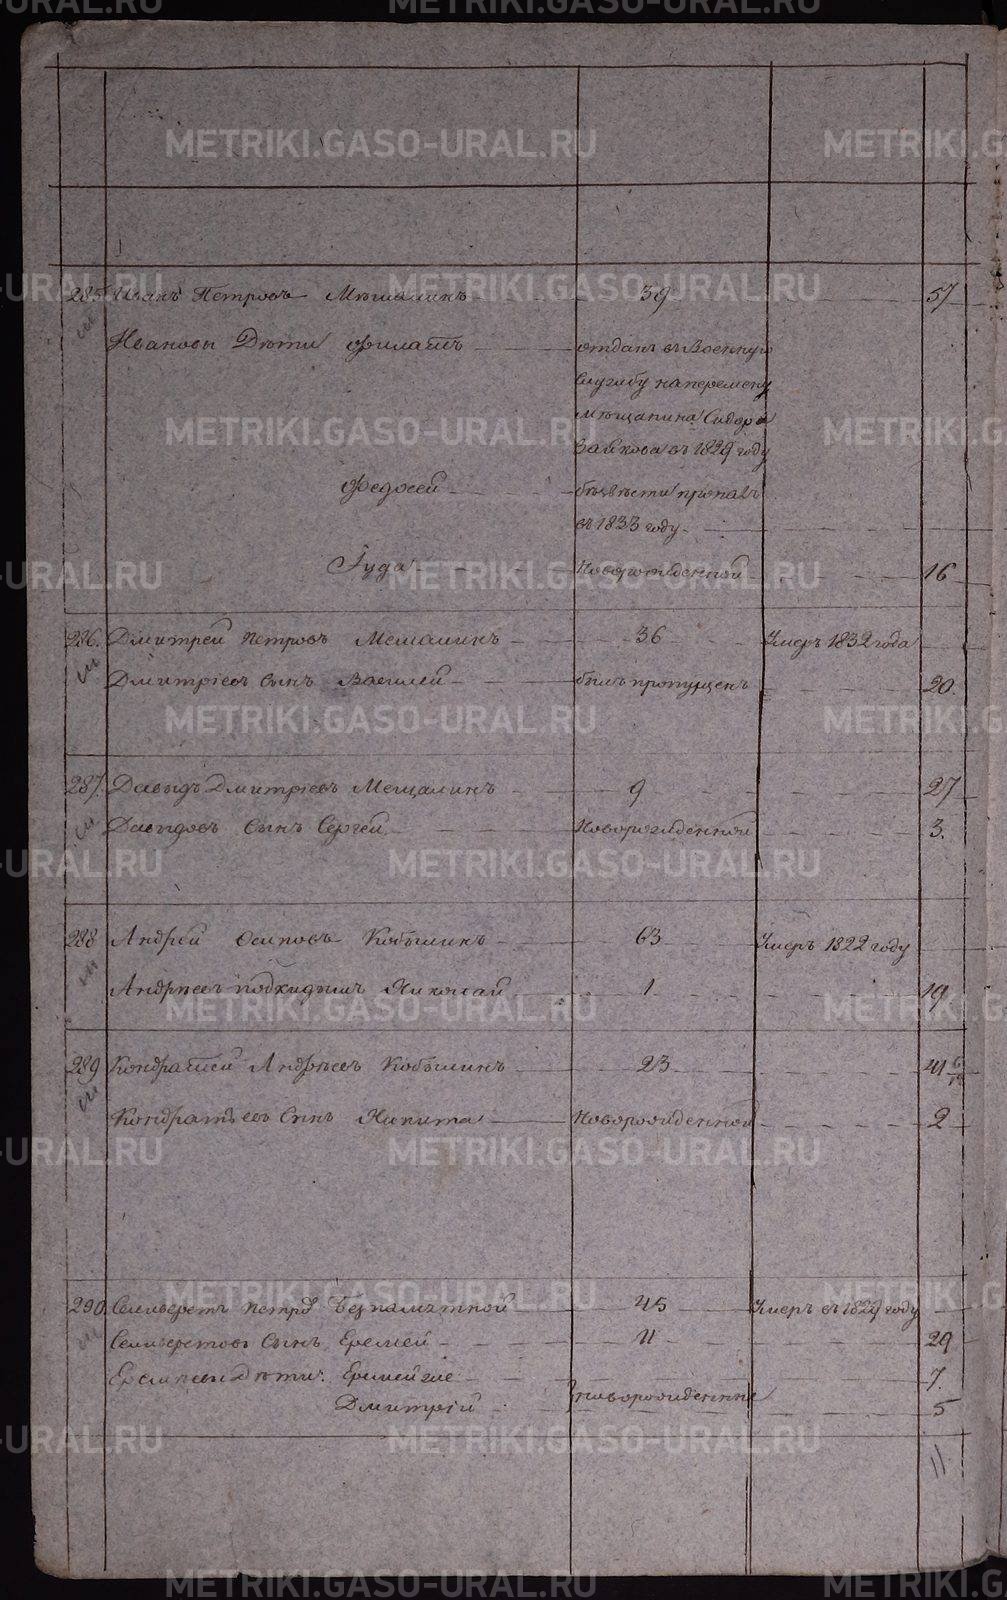 285 Иванъ Петровъ Мешалинъ 39 57
Ивановы Дети Филатъ отданъ въ военную
службу на перемену
мещанина Сидора
Зайкова въ 1829 году
Федосей безвести пропалъ
въ 1833 году
Іуда Новорожденной 16
286. Дмитрей Петровъ Мешалинъ 36 Умеръ 1832 года
Дмитріевъ сынъ Василей былъ пропущенъ 20.
287. Давыдъ Дмитріевъ Мещалинъ 9 27
Давыдовъ сынъ Сергей Новорожденной 3.
288 Андрей Осиповъ Кобылинъ 63 Умеръ 1822 году
Андреевъ подкидышъ Николай 1 19
289 Кондратей Андреевъ Кобылинъ 23 41
Кондратьевъ сынъ Никита Новорожденной 2
290. Селиверстъ Петровъ Безпамятной 45 Умеръ въ 1829 году
Селиверстовъ сынъ Еремей 11 29
дети: 7.
Дмитрій новорожденные 5
11
METRIKI.GASO-URAL.RU